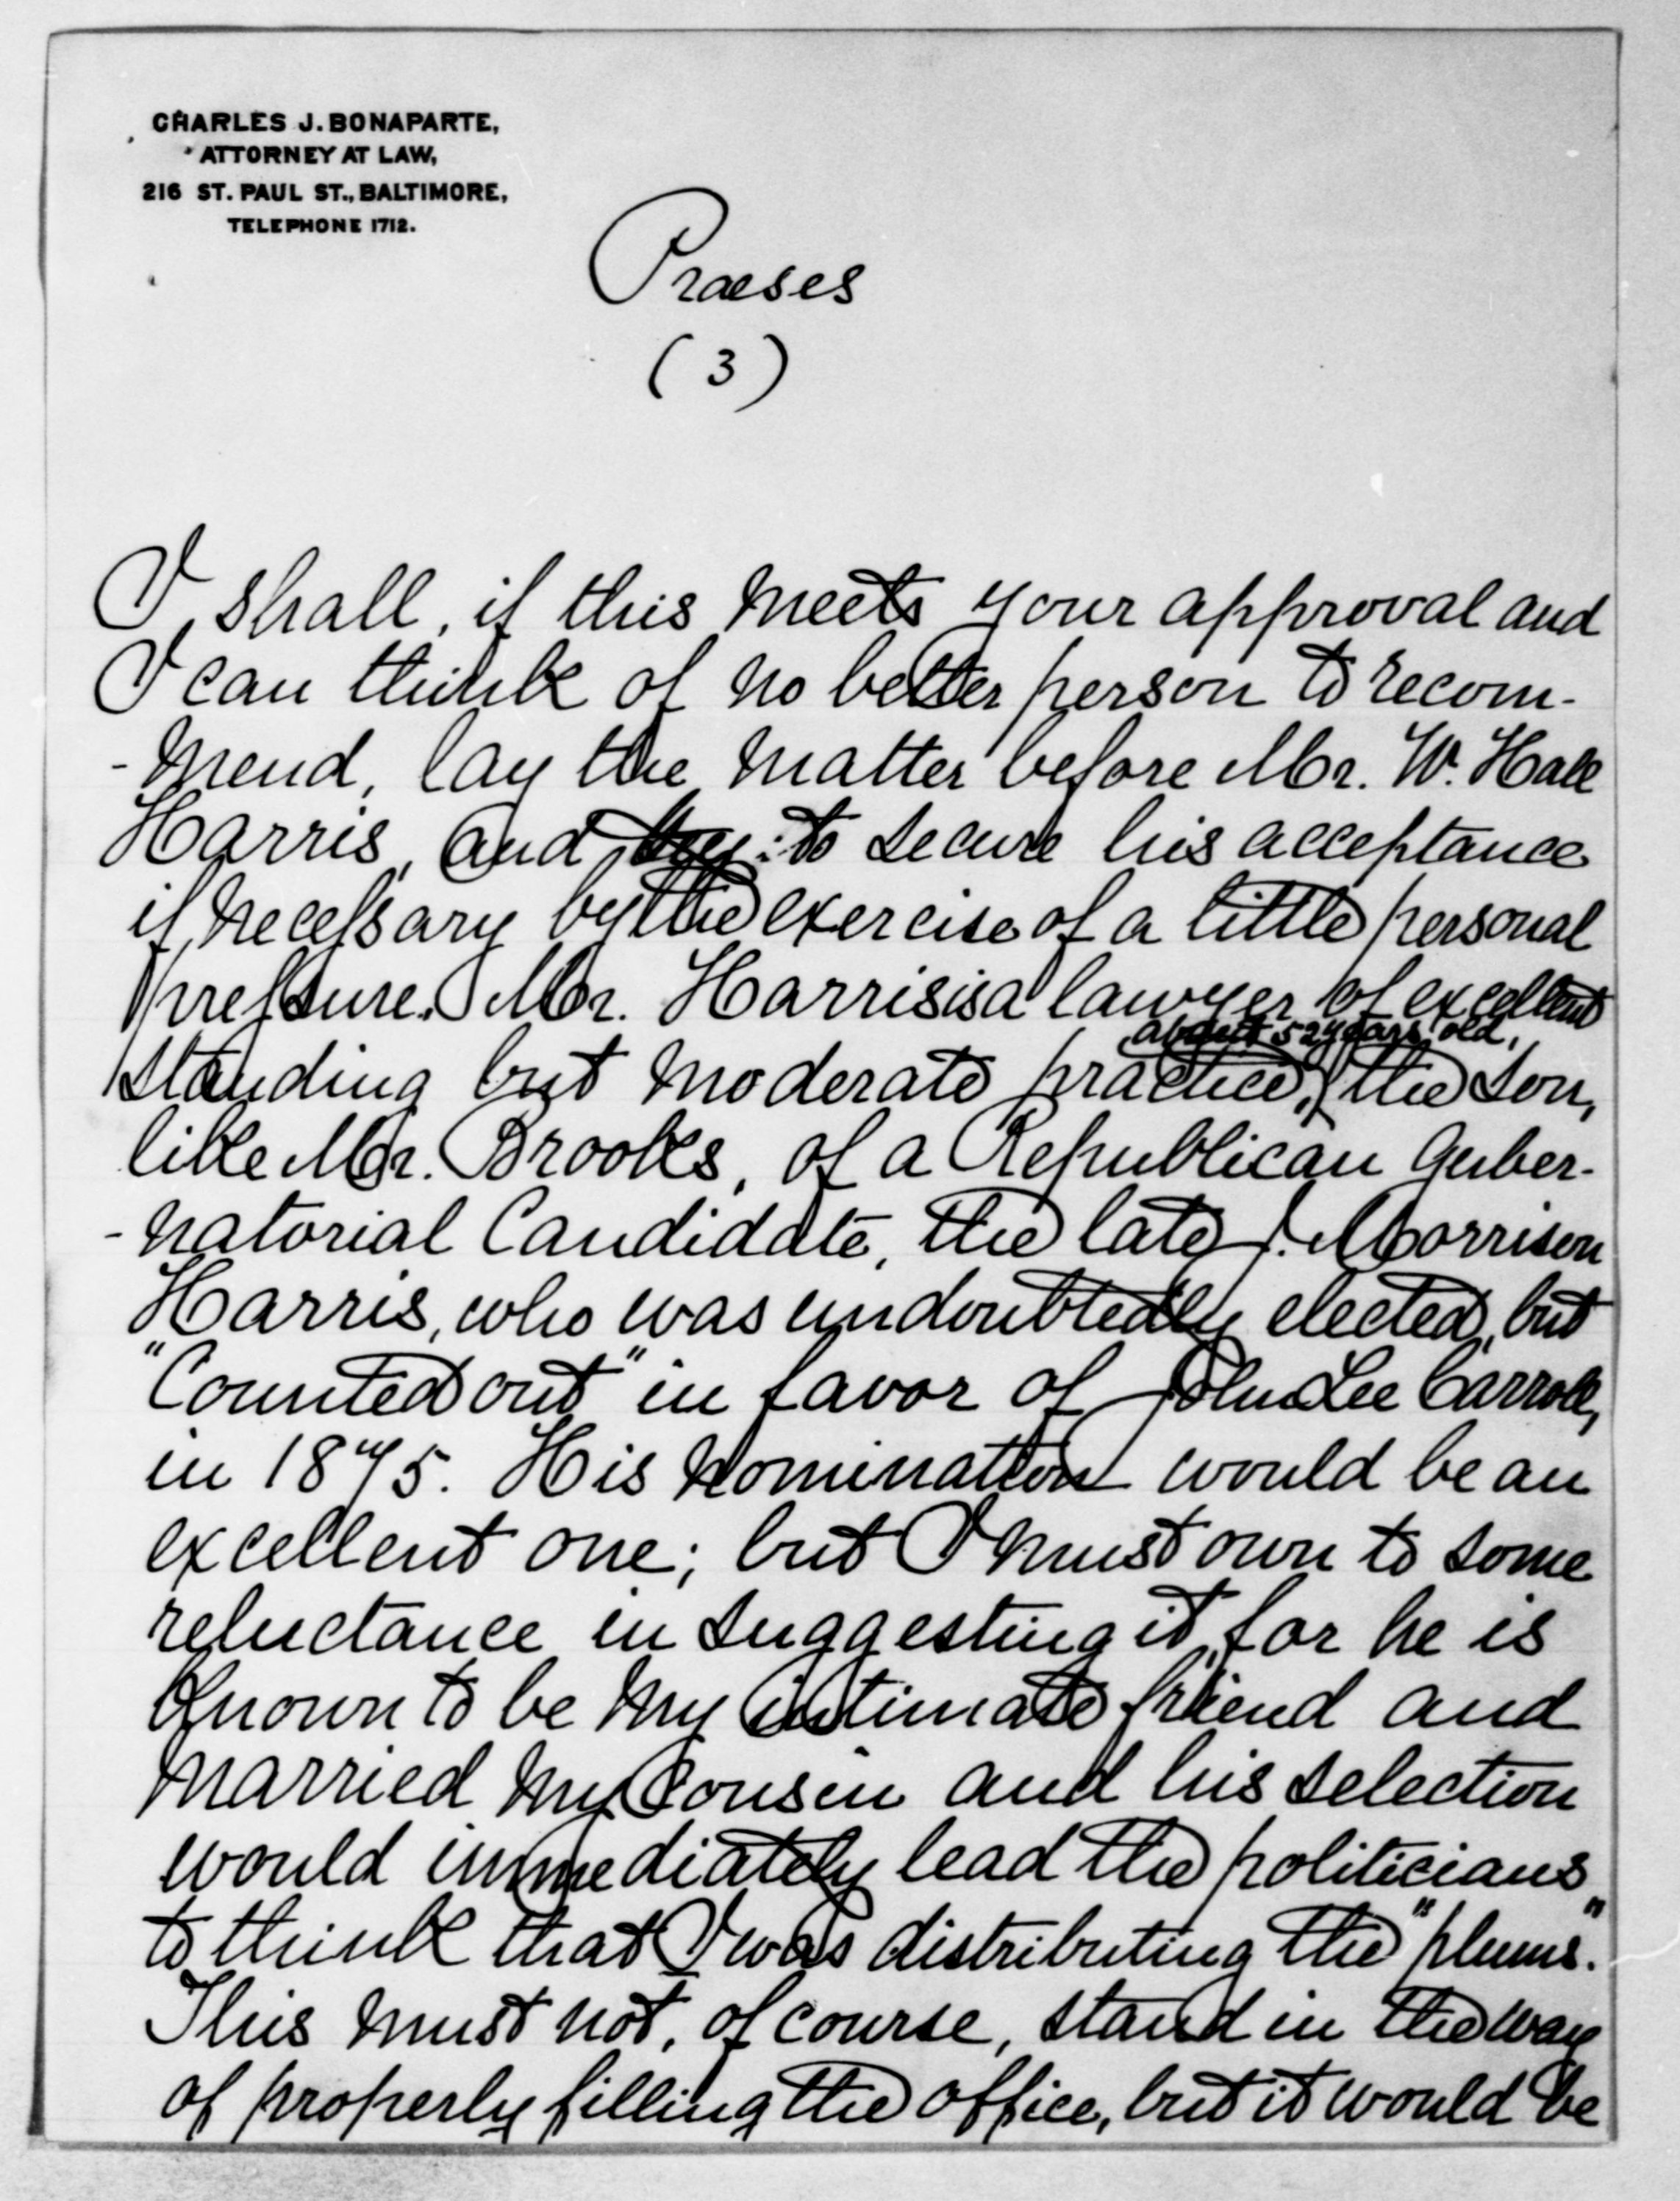 CHARLES J. BONAPARTE,
ATTORNEY AT LAW,
216 ST. PAUL ST., BALTIMORE,
TELEPHONE 1712.
Praeses
(3)
I shall, if this meets your approval and
I can think of no better person to recom-
-mend, lay the matter before Mr. W. Hall
Harris, and try to secure his acceptance
if necessary by the exercise of a little personal
pressure. Mr. Harris is a lawyer of excellent
about 52 years old,
standing but moderate practice, the son,
like Mr. Brooks, of a Republican Guber-
-natorial Candidate, the late J. Morrison
Harris, who was undoubtedly elected, but
"Counted out" in favor of John Lee Carroll,
in 1875. His nomination would be an
excellent one; but I must own to some
reluctance in suggesting it, for he is
known to be my intimate friend and
married my Cousin and his selection
would immediately lead the politicians
to think that I was distributing the "plums".
This must not, of course, stand in the way
of properly filling the office, but it would be